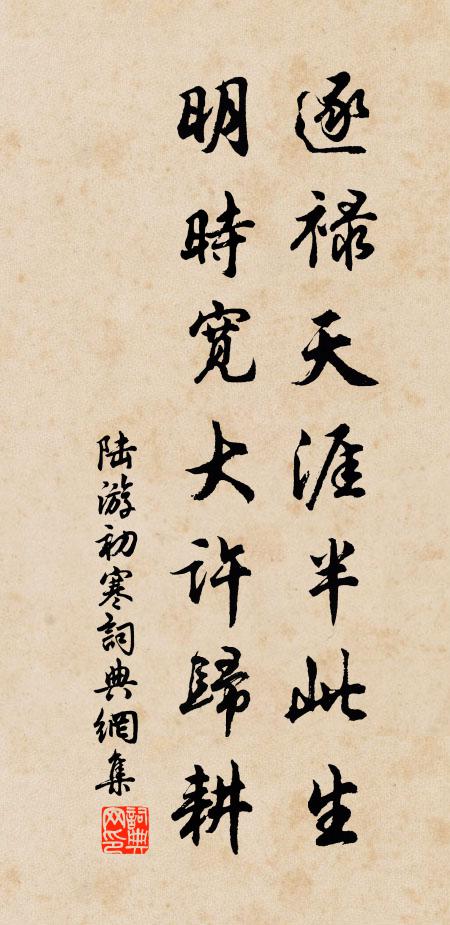 逐禄天涯半此生
明時寬大許歸耕
陸游初寒詞典網集
詞典網印